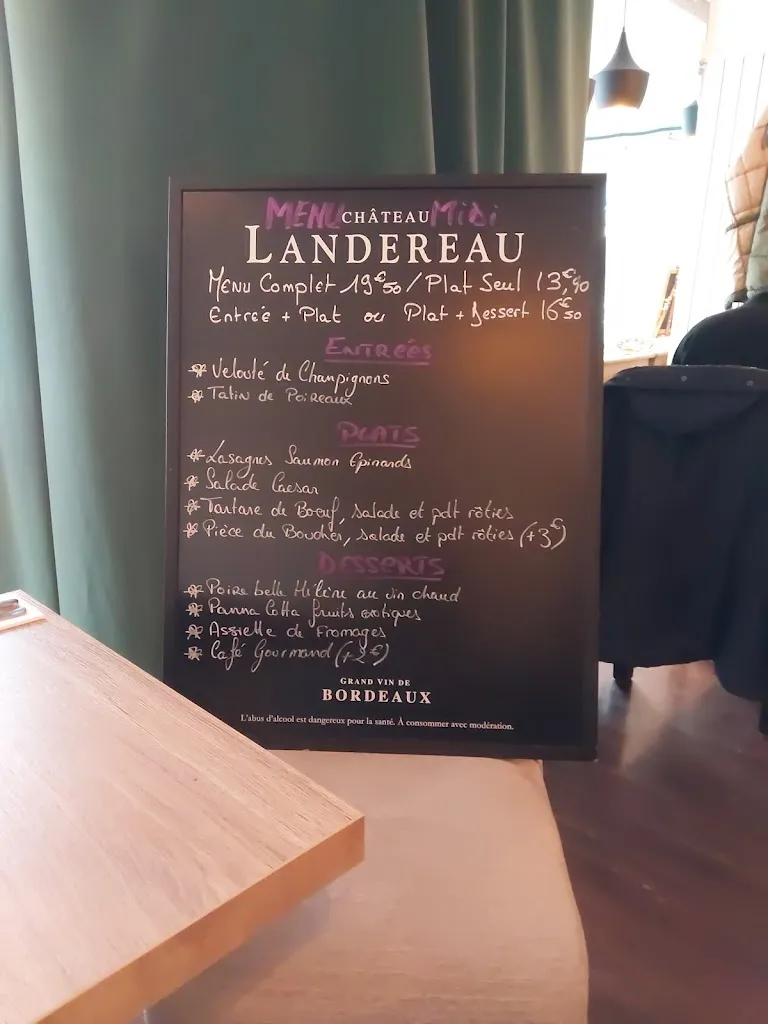 MENU CHÂTEAU Midi
LANDEREAU
Menu Complet 19€50 / Plat Seul 13,€90
Entrée + Plat ou Plat + Dessert 16€50
ENTRÉES
Velouté de Champignons
Tatin de Poireaux
PLATS
Lasagnes Saumon Epinards
Salade Caesar
Tartare de Boeuf, salade et pdt rôties
Pièce du Boucher, salade et pdt rôties (+3€)
DESSERTS
Poire belle Hélène au vin chaud
Panna Cotta fruits exotiques
Assiette de Fromages
Café Gourmand (+2€)
GRAND VIN DE
BORDEAUX
L'abus d'alcool est dangereux pour la santé. À consommer avec modération.